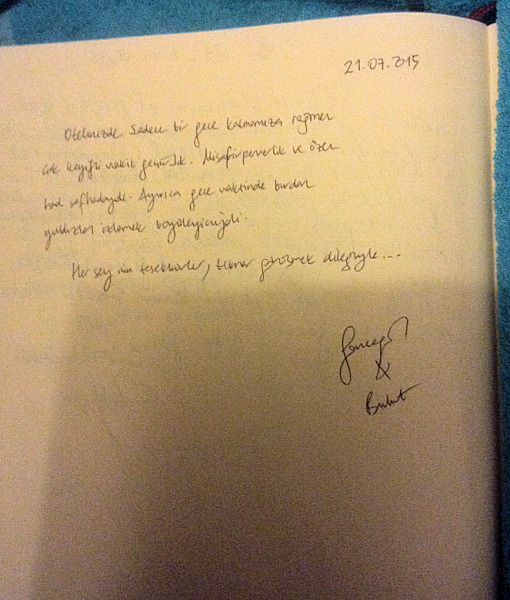 21.07.2015
Otelinizde sadece bir gece kalmamıza rağmen
çok keyifli vakit geçirdik. Misafirperverlik ve özen
had safhadaydı. Ayrıca gece vaktinde burdan
yıldızları izlemek büyüleyiciydi.
Her şey için teşekkürler, tekrar görüşmek dileğiyle...
&
Bulut